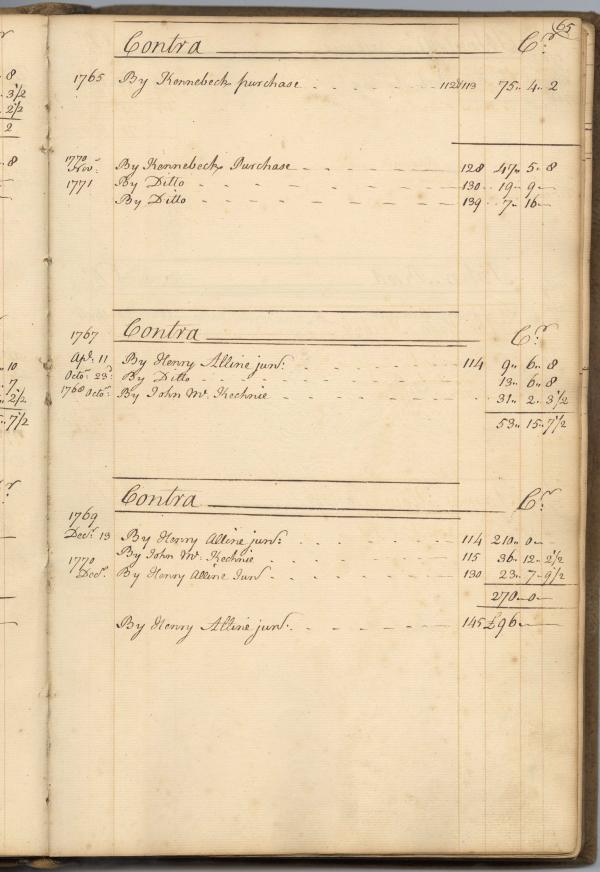 65
Contra Cr
1765 By Kennebeck purchase 112 113 75 .. 4 .. 2
1770 Novr. By Kennebeck Purchase 128 47 .. 5 .. 8
1771 By Ditto 130 19 .. 9 —
By Ditto 139 7 .. 16 —
1767 Contra Cr
Apl. 11 By Henry Alline junr. 114 9 .. 6 .. 8
Octo. 23d By Ditto 13 .. 6 .. 8
1768 Octo. By John Mc. Kechnie 31 .. 2 .. 3 1/2
53 .. 15 .. 7 1/2
Contra Cr
1769
Decr. 13 By Henry Alline junr. 114 210 .. 0 —
By John Mc. Kechnie 115 36 .. 12 .. 2 1/2
1770 Decr. By Henry Alline Junr. 130 23 .. 7 .. 9 1/2
270 — 0 —
By Henry Alline junr. 145 £96 —